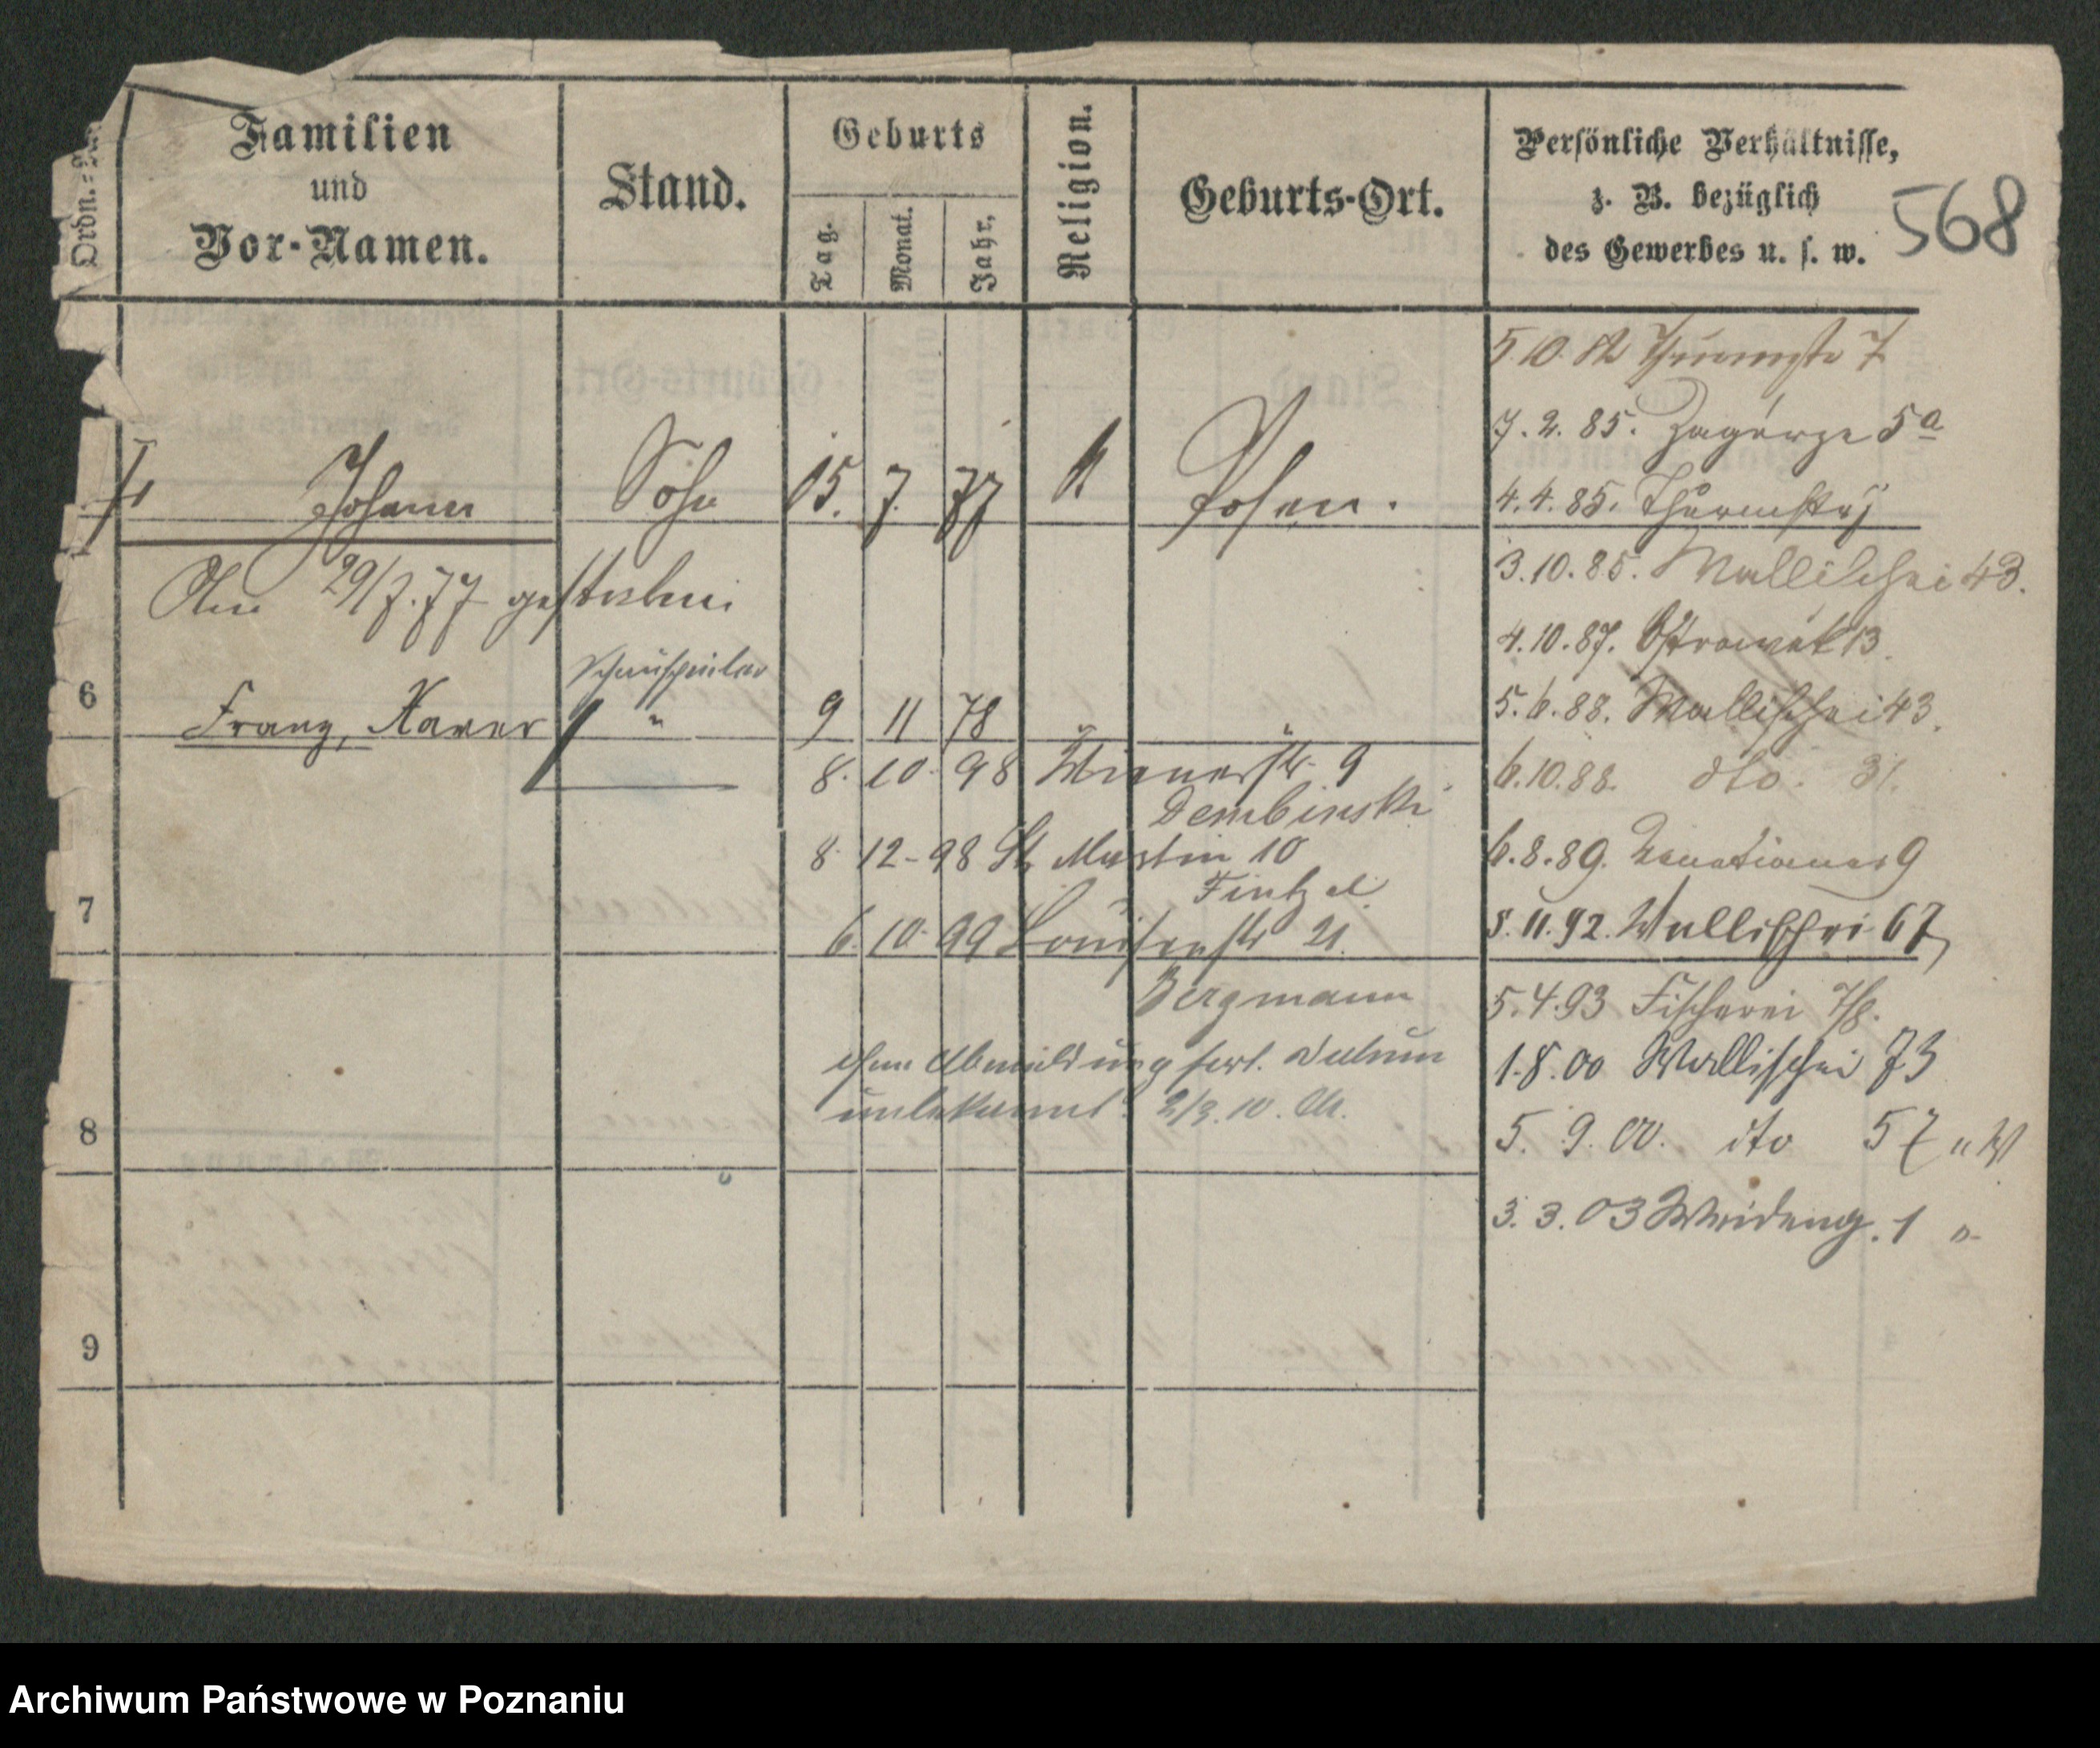 Ordn.=
Familien
und
Vor-Namen.
Stand.
Geburts
Tag.
Monat.
Jahr.
Religion.
Geburts-Ort.
Persönliche Verhältnisse,
z. B. bezüglich
des Gewerbes u. s. w.
568
5.10.82 Thurmstr 7
7.2.85. Zagórze 5a
Johann Sohn 15. 7. 77 k Posen.
4.4.85. Thurmstr 7
Am 29/7.77 gestorben
3.10.85. Wallischei 43.
4.10.87. Ostrowek 13.
6 Franz, Xaver " 9 11 78 " "
5.6.88. Wallischei 43.
8. 10. 98 Wienerstr. 9
Dembinski
6.10.88. dto. 31.
8. 12. 98 St. Martin 10
Fintzel.
6.8.89. Venetianer 9
7
6. 10. 99 Louisenstr 21.
Bergmann
8.11.92. Wallischei 67
5.4.93 Fischerei 7/8.
ohne Abmeldung fort. Datum
unbekannt. 2/3.10.
1.8.00 Wallischei 73
8
5. 9. 00. dto 57 " W
3. 3. 03 Weideng. 1 "
9
Archiwum Państwowe w Poznaniu